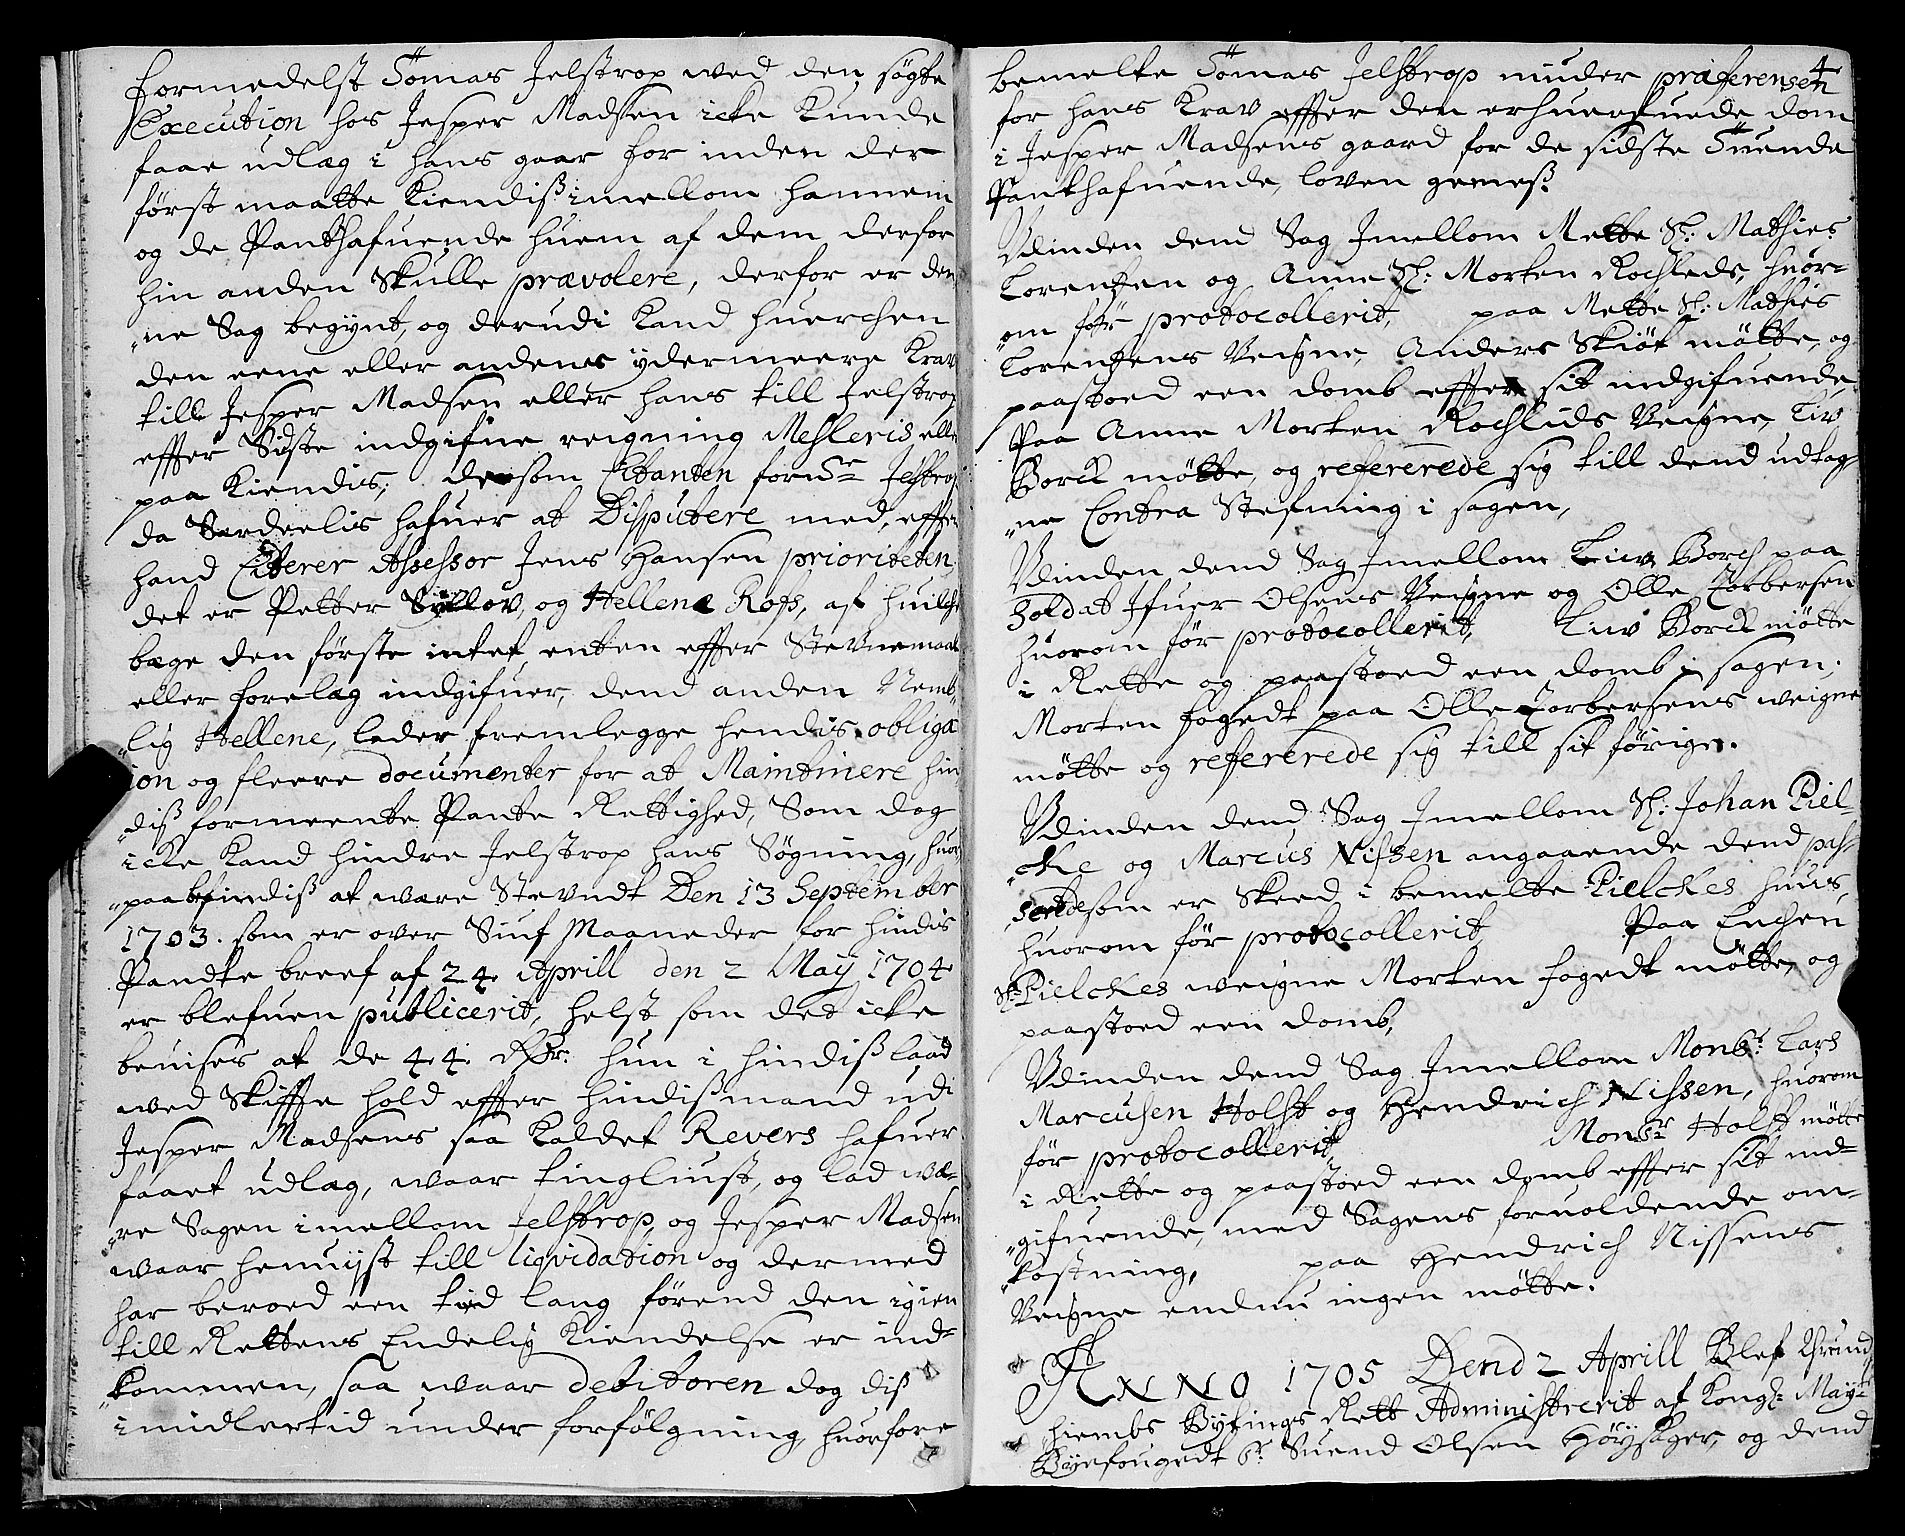 formedelst Tömas Jelstrop ved den søgte
Execution hos Jesper Madsen icke Kunde
faae udlæg i hans gaar for inden der
først maatte Kiendiß imellom hannem
og de Panthafuende huem af dem derfor
hin anden Skulle prævolere, derfor er den
ne Sag begÿnt, og derudi Kand huerchen
den eene eller andens ÿdermeere Krav
till Jesper Madsen eller hans till Jelstrop
effter Sidste indgifne reigning Mesleris eller
paa Kiendis; dersom Citanten fornte Jelstrop
da Særdeelis hafuer at Disputere med, effter
hand Citerer Assessor Jens Hansen prioriteten
det er Petter Sÿllov, og Hellene Rofs, af huilche
bæge den første intet enten effter Stevnemaal
eller forelæg indgifuer, dend anden Nemb¸
lig Hellene, lader fremlegge hendis obliga
ion og fleere documenter for at Maintinere hin
diß formeente Pante Rettighed, Som dog
icke Kand hindre Jelstrop hans Søgning, huor
paa befindiß at være Stevndt Den 13 September
1703. som er over Siuf Maaneder for hindis
Pandte breef af 24 Aprill den 2 Maÿ 1704
er blefuen publicerit, helst som det icke
beuises at de 44 Rdr: hun i hindiß laad
ved Skiffte hold effter hindiß mand udi
Jesper Madsens saa Kaldet Revers hafuer
faaet udlæg, waar tingliust, og lad wæ¸
re Sagen imellom Jelstrop, og Jesper Madsen
waar henviist till liqvidation og dermed
har beroed een tiid lang førend den igien
till Rettens Endelig Kiendelse er ind¸
kommen, saa waar debitoren dog diß
imidlertid under forfølgning, huorfore
4
bemelte Tömas Jelstrop niuder præferensen
for hans Krav effter den erhuerfuede dom
i Jesper Madsens gaard for de sidste Tuende
Panthafuende, loven gemeß.
Udinden dend Sag Imellom Mette Sl: Mathies
Lorentzen og Anne Sl: Morten Rochleds, huor¸
om før protocollerit, paa Mette Sl: Mathies
Lorentzens Veigne Anders Skiøt møtte, og
paastoed een domb effter sit indgifuende,
Paa Anne Morten Rochlids Veigne, Liv
Borck møtte, og refererede sig till dend udtag¸
ne Contra Stefning i sagen,
Udinden dend Sag Imellom Liuv Borch paa
Soldat Ifuer Olsens Veigne og Olle Torbersen
huorom før protocollerit, Liuv Borck møtte
i Rette og paastoed een domb i sagen.
Morten fogedt paa Olle Torbersens weigne
møtte og refererede sig till sit førige.
Udinden dend Sag Imellom Sl: Johan Piel¸
cke og Marcus Nissen angaaende dend pas¸
serede som er Skeed i bemelte Pielckes huus,
huorom før protocollerit, Paa Enchen
Sl: Pielckes weigne Morten fogedt møtte, og
paastoed een domb,
Udinden dend Sag Imellom Monsr: Lars
Marcusen Holst og Hendrich Nissen, huorom
før protocollerit, Monsr Holst møtte
i Rette og paastoed een domb effter sit ind¸
gifuende, med Sagens foruoldende om¸
kostning, paa Hendrich Nissens
Veigne endnu ingen møtte.
ANNO 1705 Dend 2 Aprill Blef Thrund¸
hiembs Bÿtings Rett Administrerit af Kongl: Maÿts
Bÿefougedt Sr Suend Olsen Høÿsager, og dend